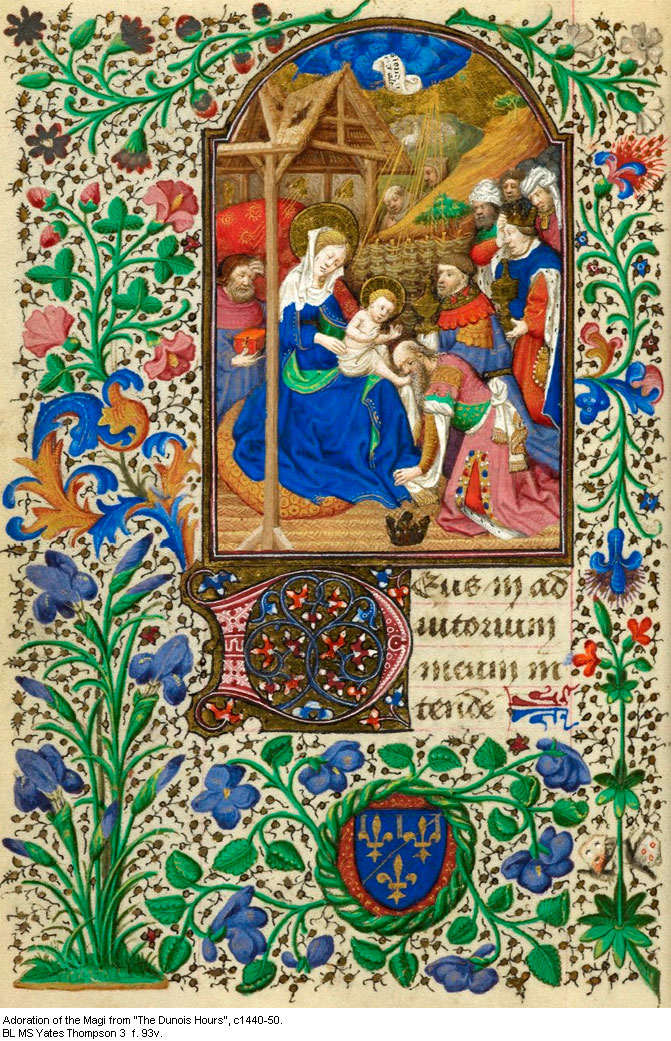 Deus in ad
iutorium
meum in
tende
Adoration of the Magi from "The Dunois Hours", c1440-50.
BL MS Yates Thompson 3 f. 93v.